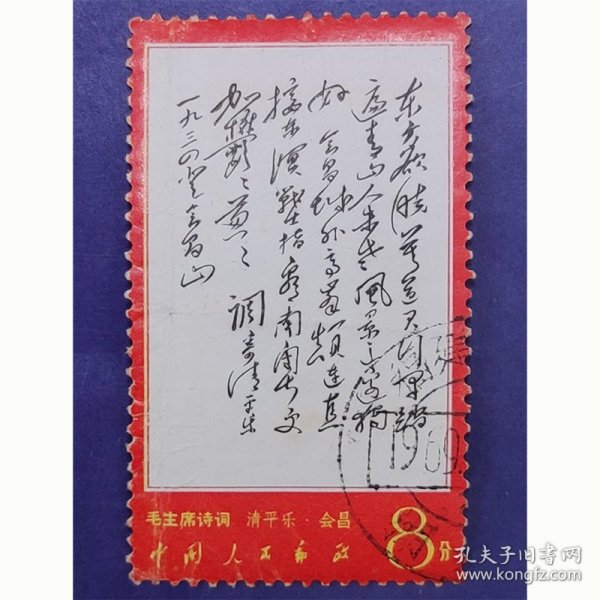 东方欲晓莫道君行早踏
遍青山人未老风景这边独
好会昌城外高峰颠连直
接东溟战士指看南粤更
加郁〻葱〻 调寄清平乐
一九三四登会昌山
毛主席诗词 清平乐·会昌
中国人民邮政
8分
孔夫子旧书网
kongfz.com